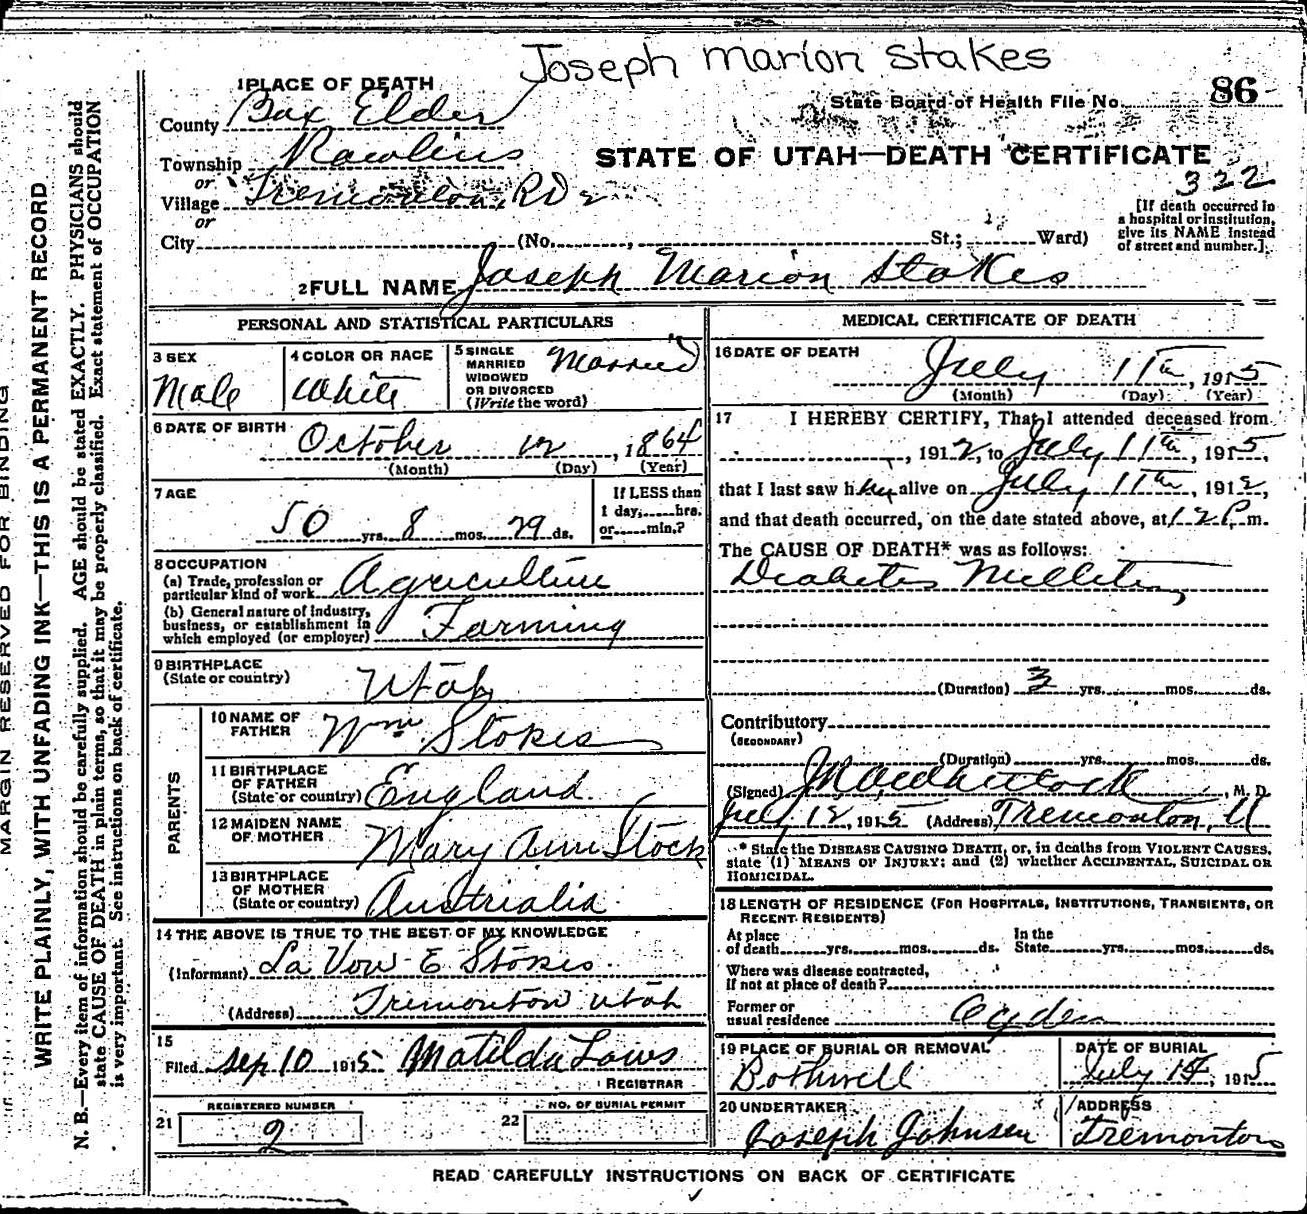 Joseph Marion Stakes
1 PLACE OF DEATH
State Board of Health File No. 86
County Box Elder
Township Rawlins
STATE OF UTAH—DEATH CERTIFICATE
322
or
Village Tremonton, RD 2
or
[If death occurred in
a hospital or institution,
give its NAME instead
of street and number.]
City (No. , St.; Ward)
2 FULL NAME Joseph Marion Stokes
PERSONAL AND STATISTICAL PARTICULARS
3 SEX
Male
4 COLOR OR RACE
White
5 SINGLE
MARRIED
WIDOWED
OR DIVORCED
(Write the word)
Married
6 DATE OF BIRTH
October 12, 1864
(Month) (Day) (Year)
7 AGE
50 yrs. 8 mos. 29 ds.
If LESS than
1 day, hrs.
or min.?
8 OCCUPATION
(a) Trade, profession or
particular kind of work Agriculture
(b) General nature of industry,
business, or establishment in
which employed (or employer) Farming
9 BIRTHPLACE
(State or country) Utah
PARENTS
10 NAME OF
FATHER Wm Stokes
11 BIRTHPLACE
OF FATHER
(State or country) England
12 MAIDEN NAME
OF MOTHER Mary Ann Stock
13 BIRTHPLACE
OF MOTHER
(State or country) Austrialia
14 THE ABOVE IS TRUE TO THE BEST OF MY KNOWLEDGE
(Informant) La Vow E Stokes
(Address) Tremonton Utah
15
Filed Sep 10 1915 Matilda Laws
REGISTRAR
REGISTERED NUMBER
21 2
NO. OF BURIAL PERMIT
22
MEDICAL CERTIFICATE OF DEATH
16 DATE OF DEATH
July 11th, 1915
(Month) (Day) (Year)
17 I HEREBY CERTIFY, That I attended deceased from
, 1912, to July 11th, 1915,
that I last saw h alive on July 11th, 1912,
and that death occurred, on the date stated above, at 12 P. m.
The CAUSE OF DEATH* was as follows:
Diabetes Mellitus
(Duration) 3 yrs. mos. ds.
Contributory
(SECONDARY)
(Duration) yrs. mos. ds.
(Signed) , M. D.
July 12, 1915 (Address) Tremonton, U
* State the DISEASE CAUSING DEATH, or, in deaths from VIOLENT CAUSES,
state (1) MEANS OF INJURY; and (2) whether ACCIDENTAL, SUICIDAL OR
HOMICIDAL.
18 LENGTH OF RESIDENCE (FOR HOSPITALS, INSTITUTIONS, TRANSIENTS, OR
RECENT RESIDENTS)
At place
of death yrs. mos. ds.
In the
State yrs. mos. ds.
Where was disease contracted,
If not at place of death?
Former or
usual residence Ogden
19 PLACE OF BURIAL OR REMOVAL
Bothwell
DATE OF BURIAL
July 14, 1915
20 UNDERTAKER
Joseph Johnsen
ADDRESS
Tremonton
READ CAREFULLY INSTRUCTIONS ON BACK OF CERTIFICATE
MARGIN RESERVED FOR BINDING
WRITE PLAINLY, WITH UNFADING INK—THIS IS A PERMANENT RECORD
N. B.—Every item of information should be carefully supplied. AGE should be stated EXACTLY. PHYSICIANS should
state CAUSE OF DEATH in plain terms, so that it may be properly classified. Exact statement of OCCUPATION
is very important. See instructions on back of certificate.